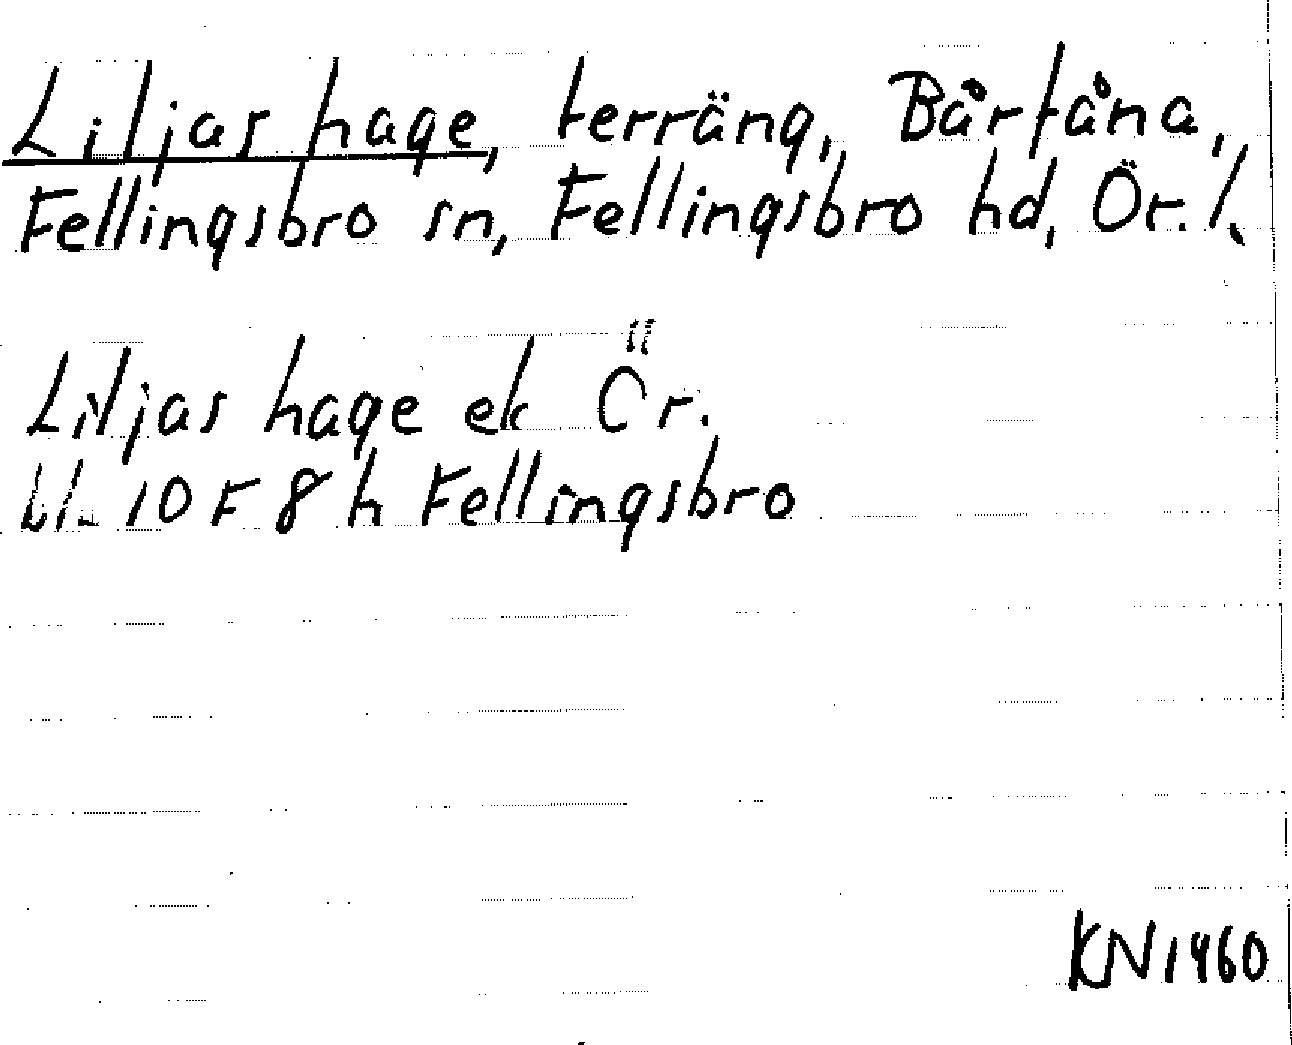 Liljas hage, terräng, Bårtåna,
Fellingsbro sn, Fellingsbro hd, Ör. l.
Liljas hage ek Ör.
bl. 10 F 8 h Fellingsbro
KN 1960